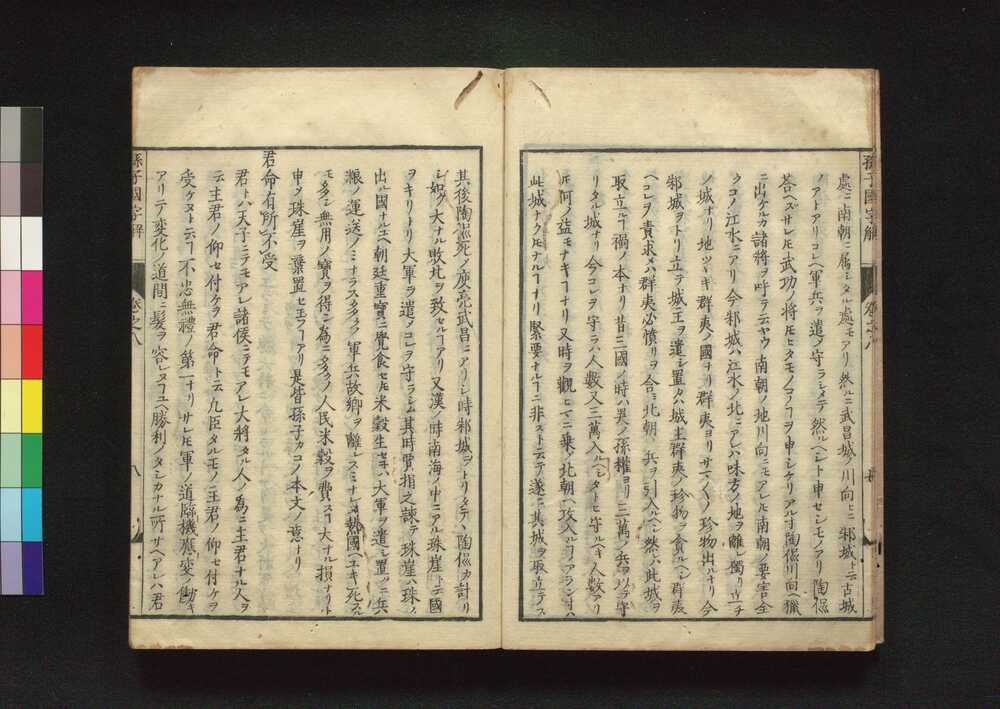 孫子國字解
卷之八
處ニ南朝ニ属シタル處モアリ然ルニ武昌城ノ川向ヒニ邾城ト云古城
ノアトアリコレヘ軍兵ヲ遣ノ守ラシメテ然ルヘシト申セシモノアリ陶侃
答ヘズサレ𪜈武功ノ将𪜈ヒタモノコノヿヲ申シケリアル時陶侃川向ヘ獵
ニ出ケルカ諸将ヲ呼テ云ヤウ南朝ノ地川向ニモアレ𪜈南朝ノ要害全
クコノ江水ニアリ今邾城ハ江水ノ北ニアレハ味方ノ地ヲ離レ獨リ立チ
ノ城ナリ地ツヽキ群夷ノ國ナリ群夷ヨリサマ〱ノ珍物出ルナリ今
邾城ヲトリ立テ城主ヲ遣シ置カハ城主群夷ノ珍物ヲ貪ルヘシ群夷
ヘコレヲ責求メハ群夷必憤リヲ合ミ北朝ノ兵ヲ引入ルヘシ然レハ此城ヲ
取立ルヿ禍ノ本ナリ昔三國ノ時ハ吴ノ孫權ヨリ三萬ノ兵ヲ以テ守
リタル城ナリ今コレヲ守ラハ人數又三萬入ルヘシタトヒ守ルヘキ人數アリ
𪜈何ノ益モナキヿナリ又時ヲ觀ヒマニ乗ノ北朝ヘ攻入ルヿアラン寸ハ
此城ナクモナルヿナリ緊要ナルヿニ非スト云テ遂ニ其城ヲ取立テス
其後陶侃死ノ庾亮武昌ニアリシ時邾城ヲトリタテヽ陶侃カ計リ
シ如ク大ナル敗北ヲ致セルヿアリ又漢ノ時南海ノ中ニアル珠崖ト云國
ヲキリトリ大軍ヲ遣メコレヲ守ラシム其時賈捐之諌テ珠崖ハ珠ノ
出ル國ナルユヘ朝廷重寳ニ覺食セ𪜈米穀生セネハ大軍ヲ遣シ置ノニ兵
粮ノ運送ノミナラス多クノ軍兵故郷ヲ離レスミナレヌ熱國ヘユキ死ス
モ多シ無用ノ寶ヲ得ン為ニ多クノ人民米穀ヲ費スヿ大ナル損ナリト
申メ珠崖ヲ棄置セ玉フヿアリ是皆孫子カコノ本文ノ意ナリ
君命有所不受
君トハ天子ニテモアレ諸侯ニテモアレ大将タル人ノ為ニ主君ナル人ヲ
云主君ノ仰セ付ケヲ君命ト云凡臣タルモノ主君ノ仰セ付ケヲ
受ケヌト云ヿ不忠無禮ノ第一ナリサレ𪜈軍ノ道臨機應変ノ働キ
アリテ変化ノ道間ニ髪ヲ容レヌヿユヘ勝利ノタシカナル所サヘアレハ君
孫子國字解
卷之八
八